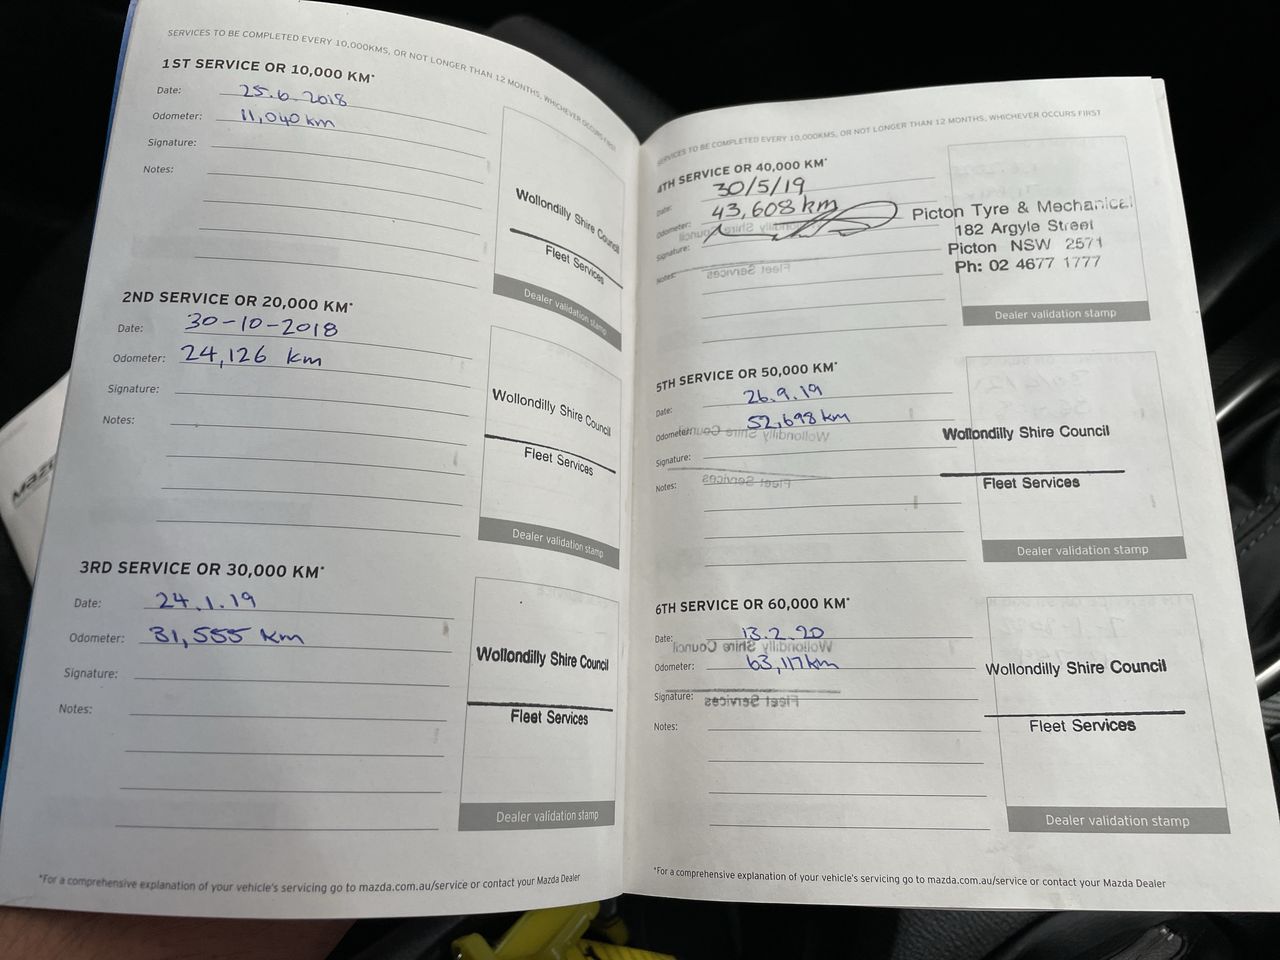 SERVICES TO BE COMPLETED EVERY 10,000KMS, OR NOT LONGER THAN 12 MONTHS, WHICHEVER OCCURS FIRST
1ST SERVICE OR 10,000 KM*
Date: 25.6.2018
Odometer: 11,040 km
Signature:
Notes:
Wollondilly Shire Council
Fleet Services
Dealer validation stamp
2ND SERVICE OR 20,000 KM*
Date: 30-10-2018
Odometer: 24,126 km
Signature:
Notes:
Wollondilly Shire Council
Fleet Services
Dealer validation stamp
3RD SERVICE OR 30,000 KM*
Date: 24.1.19
Odometer: 31,555 km
Signature:
Notes:
Wollondilly Shire Council
Fleet Services
Dealer validation stamp
*For a comprehensive explanation of your vehicle's servicing go to mazda.com.au/service or contact your Mazda Dealer
SERVICES TO BE COMPLETED EVERY 10,000KMS, OR NOT LONGER THAN 12 MONTHS, WHICHEVER OCCURS FIRST
4TH SERVICE OR 40,000 KM*
Date: 30/5/19
Odometer: 43,608 km
Signature:
Notes:
Picton Tyre & Mechanical
182 Argyle Street
Picton NSW 2571
Ph: 02 4677 1777
Dealer validation stamp
5TH SERVICE OR 50,000 KM*
Date: 26.9.19
Odometer: 52,698 km
Signature:
Notes:
Wollondilly Shire Council
Fleet Services
Dealer validation stamp
6TH SERVICE OR 60,000 KM*
Date: 13.2.20
Odometer: 63,117 km
Signature:
Notes:
Wollondilly Shire Council
Fleet Services
Dealer validation stamp
*For a comprehensive explanation of your vehicle's servicing go to mazda.com.au/service or contact your Mazda Dealer